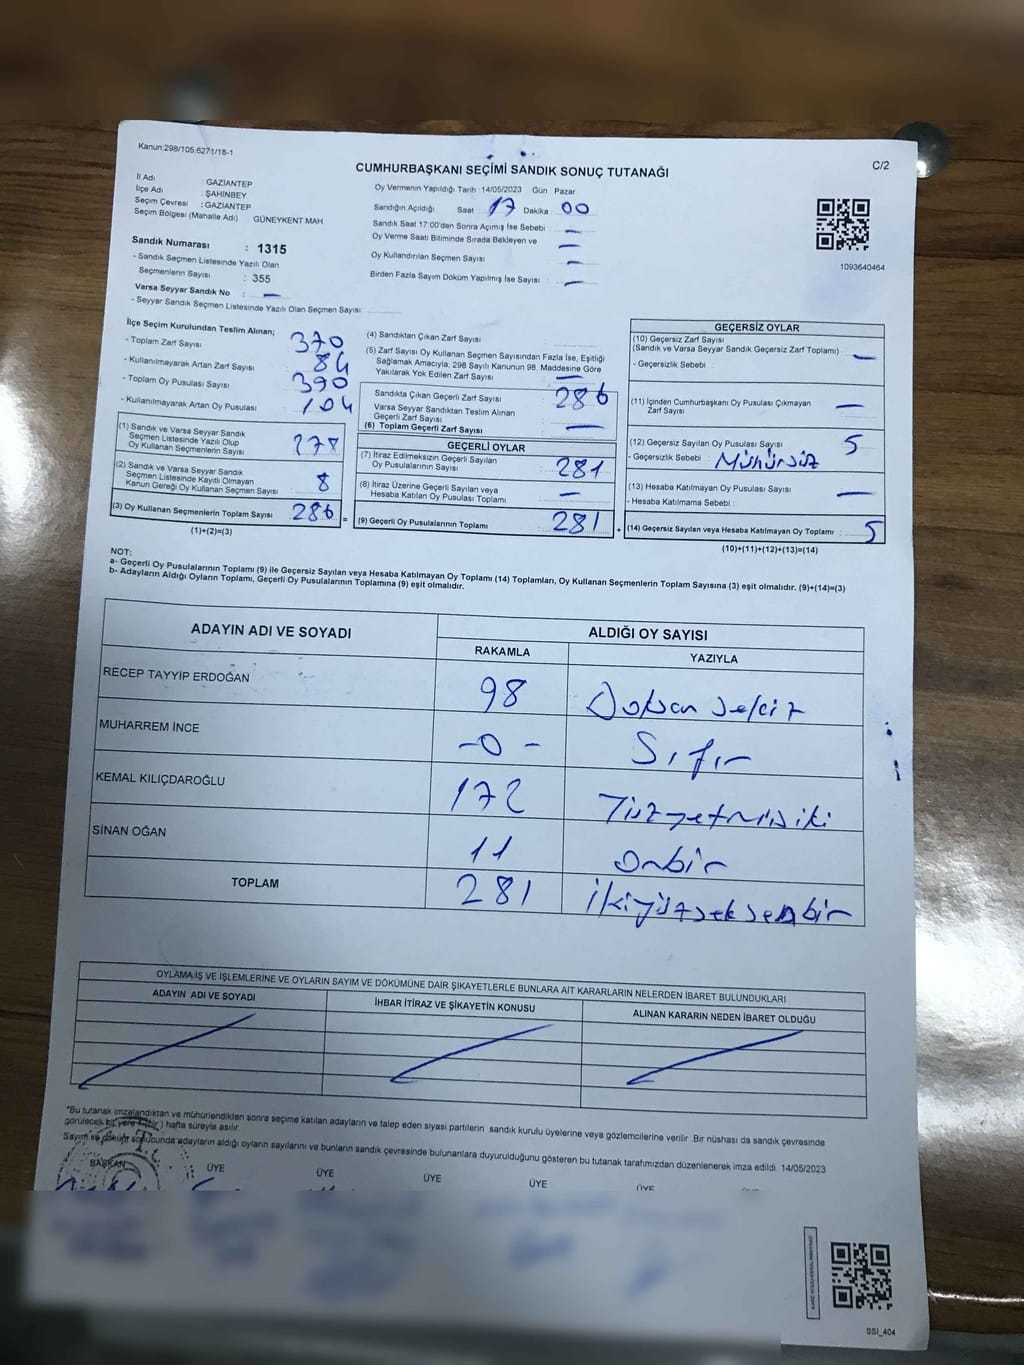 Kanun:298/105,6271/18-1
C/2
CUMHURBAŞKANI SEÇİMİ SANDIK SONUÇ TUTANAĞI
İl Adı : GAZİANTEP
İlçe Adı : ŞAHİNBEY
Seçim Çevresi : GAZİANTEP
Seçim Bölgesi (Mahalle Adı) : GÜNEYKENT MAH.
Sandık Numarası : 1315
- Sandık Seçmen Listesinde Yazılı Olan
Seçmenlerin Sayısı : 355
Varsa Seyyar Sandık No : —
- Seyyar Sandık Seçmen Listesinde Yazılı Olan Seçmen Sayısı :
Oy Vermenin Yapıldığı Tarih : 14/05/2023 Gün Pazar
Sandığın Açıldığı Saat : 17 Dakika : 00
Sandık Saat 17:00'den Sonra Açımış İse Sebebi : —
Oy Verme Saati Bitiminde Sırada Bekleyen ve : —
Oy Kullandırılan Seçmen Sayısı : —
Birden Fazla Sayım Döküm Yapılmış İse Sayısı : —
1093640464
İlçe Seçim Kurulundan Teslim Alınan;
- Toplam Zarf Sayısı : 370
- Kullanılmayarak Artan Zarf Sayısı : 84
- Toplam Oy Pusulası Sayısı : 390
- Kullanılmayarak Artan Oy Pusulası : 104
(1) Sandık ve Varsa Seyyar Sandık
Seçmen Listesinde Yazılı Olup
Oy Kullanan Seçmenlerin Sayısı : 278
(2) Sandık ve Varsa Seyyar Sandık
Seçmen Listesinde Kayıtlı Olmayan
Kanun Gereği Oy Kullanan Seçmen Sayısı : 8
(3) Oy Kullanan Seçmenlerin Toplam Sayısı : 286 =
(1)+(2)=(3)
(4) Sandıktan Çıkan Zarf Sayısı :
(5) Zarf Sayısı Oy Kullanan Seçmen Sayısından Fazla İse, Eşitliği
Sağlamak Amacıyla; 298 Sayılı Kanunun 98. Maddesine Göre
Yakılarak Yok Edilen Zarf Sayısı : —
Sandıkta Çıkan Geçerli Zarf Sayısı : 286
Varsa Seyyar Sandıktan Teslim Alınan
Geçerli Zarf Sayısı : —
(6) Toplam Geçerli Zarf Sayısı :
GEÇERLİ OYLAR
(7) İtiraz Edilmeksizin Geçerli Sayılan
Oy Pusulalarının Sayısı : 281
(8) İtiraz Üzerine Geçerli Sayılan veya
Hesaba Katılan Oy Pusulası Toplamı : —
(9) Geçerli Oy Pusulalarının Toplamı : 281 +
GEÇERSİZ OYLAR
(10) Geçersiz Zarf Sayısı
(Sandık ve Varsa Seyyar Sandık Geçersiz Zarf Toplamı) : —
- Geçersizlik Sebebi :
(11) İçinden Cumhurbaşkanı Oy Pusulası Çıkmayan
Zarf Sayısı : —
(12) Geçersiz Sayılan Oy Pusulası Sayısı : 5
- Geçersizlik Sebebi : Mühürsüz
(13) Hesaba Katılmayan Oy Pusulası Sayısı : —
- Hesaba Katılmama Sebebi :
(14) Geçersiz Sayılan veya Hesaba Katılmayan Oy Toplamı : 5
(10)+(11)+(12)+(13)=(14)
NOT:
a- Geçerli Oy Pusulalarının Toplamı (9) ile Geçersiz Sayılan veya Hesaba Katılmayan Oy Toplamı (14) Toplamları, Oy Kullanan Seçmenlerin Toplam Sayısına (3) eşit olmalıdır. (9)+(14)=(3)
b- Adayların Aldığı Oyların Toplamı, Geçerli Oy Pusulalarının Toplamına (9) eşit olmalıdır.
ADAYIN ADI VE SOYADI ALDIĞI OY SAYISI
RAKAMLA YAZIYLA
RECEP TAYYİP ERDOĞAN 98 Doksan sekiz
MUHARREM İNCE -0- Sıfır
KEMAL KILIÇDAROĞLU 172 Yüzyetmişiki
SİNAN OĞAN 11 Onbir
TOPLAM 281 İkiyüzseksenbir
OYLAMA İŞ VE İŞLEMLERİNE VE OYLARIN SAYIM VE DÖKÜMÜNE DAİR ŞİKAYETLERLE BUNLARA AİT KARARLARIN NELERDEN İBARET BULUNDUKLARI
ADAYIN ADI VE SOYADI İHBAR İTİRAZ VE ŞİKAYETİN KONUSU ALINAN KARARIN NEDEN İBARET OLDUĞU
"Bu tutanak imzalandıktan ve mühürlendikten sonra seçime katılan adayların ve talep eden siyasi partilerin sandık kurulu üyelerine veya gözlemcilerine verilir. Bir nüshası da sandık çevresinde
görülecek bir yere 1 (bir) hafta süreyle asılır.
Sayım ve döküm sonucunda adayların aldığı oyların sayılarını ve bunların sandık çevresinde bulunanlara duyurulduğunu gösteren bu tutanak tarafımızdan düzenlenerek imza edildi. 14/05/2023
BAŞKAN ÜYE ÜYE ÜYE ÜYE ÜYE ÜYE
T.C.
SSI_404